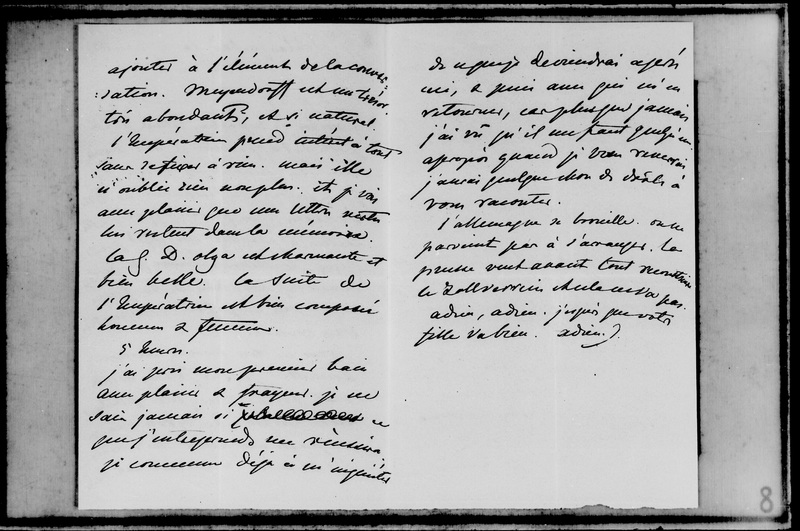 ajouter à l'élément de la conver
sation. Meyendorff est un
très abondant, et si naturel.
l'Impératrice prend intérêt à tout
sans se fixer à rien. mais elle
n'oublie rien non plus. et je vois
avec plaisir que mes lettres
lui restent dans la mémoire.
la G. D. Olga est charmante et
bien belle. la suite de
l'Impératrice est bien composée
hommes & femmes.
5 heures.
j'ai pris mon premier bain
avec plaisir & frayeur. je ne
sais jamais si ce
que j'entreprends me réussira
je commence déjà à m'inquiéter
de ce que je deviendrai après
ici, & puis avec qui m'en
retourner, car plus que jamais
j'ai vu qu'il me faut quelqu'un.
apropos quand je vous reverrai
j'aurai quelque chose de drôle à
vous raconter.
l'allemagne se brouille. on ne
parvient pas à s'arranger. la
prusse veut avant tout reconstituer
le Zollverein et cela ne va pas.
adieu, adieu. j'espère que votre
fille va bien. adieu.
8